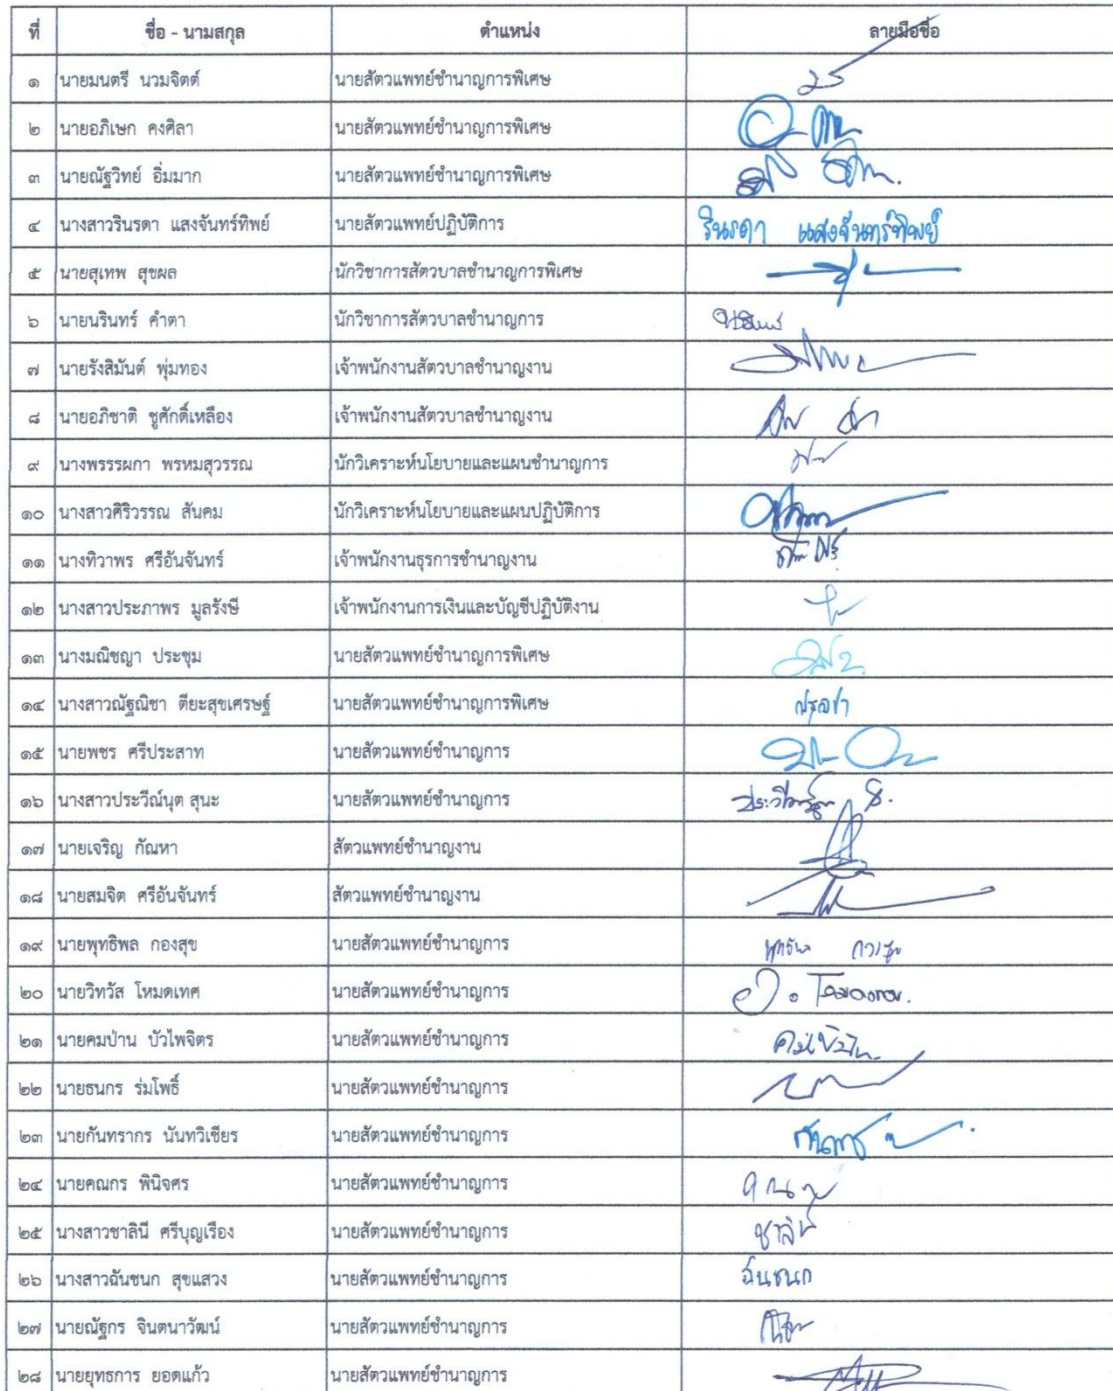 ที่ ชื่อ - นามสกุล ตำแหน่ง ลายมือชื่อ
๑ นายมนตรี นวมจิตต์ นายสัตวแพทย์ชำนาญการพิเศษ
๒ นายอภิเษก คงศิลา นายสัตวแพทย์ชำนาญการพิเศษ
๓ นายณัฐวิทย์ อิ่มมาก นายสัตวแพทย์ชำนาญการพิเศษ
๔ นางสาวรินรดา แสงจันทร์ทิพย์ นายสัตวแพทย์ปฏิบัติการ รินรดา แสงจันทร์ทิพย์
๕ นายสุเทพ สุขผล นักวิชาการสัตวบาลชำนาญการพิเศษ
๖ นายนรินทร์ คำตา นักวิชาการสัตวบาลชำนาญการ
๗ นายรังสิมันต์ พุ่มทอง เจ้าพนักงานสัตวบาลชำนาญงาน
๘ นายอภิชาติ ชูศักดิ์เหลือง เจ้าพนักงานสัตวบาลชำนาญงาน
๙ นางพรรรผกา พรหมสุวรรณ นักวิเคราะห์นโยบายและแผนชำนาญการ
๑๐ นางสาวศิริวรรณ สันคม นักวิเคราะห์นโยบายและแผนปฏิบัติการ
๑๑ นางทิวาพร ศรีอันจันทร์ เจ้าพนักงานธุรการชำนาญงาน
๑๒ นางสาวประภาพร มูลรังษี เจ้าพนักงานการเงินและบัญชีปฏิบัติงาน
๑๓ นางมณิชญา ประชุม นายสัตวแพทย์ชำนาญการพิเศษ
๑๔ นางสาวณัฐณิชา ตียะสุขเศรษฐ์ นายสัตวแพทย์ชำนาญการพิเศษ
๑๕ นายพชร ศรีประสาท นายสัตวแพทย์ชำนาญการ
๑๖ นางสาวประวีณ์นุต สุนะ นายสัตวแพทย์ชำนาญการ
๑๗ นายเจริญ กัณหา สัตวแพทย์ชำนาญงาน
๑๘ นายสมจิต ศรีอันจันทร์ สัตวแพทย์ชำนาญงาน
๑๙ นายพุทธิพล กองสุข นายสัตวแพทย์ชำนาญการ
๒๐ นายวิทวัส โหมดเทศ นายสัตวแพทย์ชำนาญการ
๒๑ นายคมป่าน บัวไพจิตร นายสัตวแพทย์ชำนาญการ
๒๒ นายธนกร ร่มโพธิ์ นายสัตวแพทย์ชำนาญการ
๒๓ นายกันทรากร นันทวิเชียร นายสัตวแพทย์ชำนาญการ
๒๔ นายคณกร พินิจศร นายสัตวแพทย์ชำนาญการ
๒๕ นางสาวชาลินี ศรีบุญเรือง นายสัตวแพทย์ชำนาญการ
๒๖ นางสาวฉันชนก สุขแสวง นายสัตวแพทย์ชำนาญการ ฉันชนก
๒๗ นายณัฐกร จินตนาวัฒน์ นายสัตวแพทย์ชำนาญการ
๒๘ นายยุทธการ ยอดแก้ว นายสัตวแพทย์ชำนาญการ